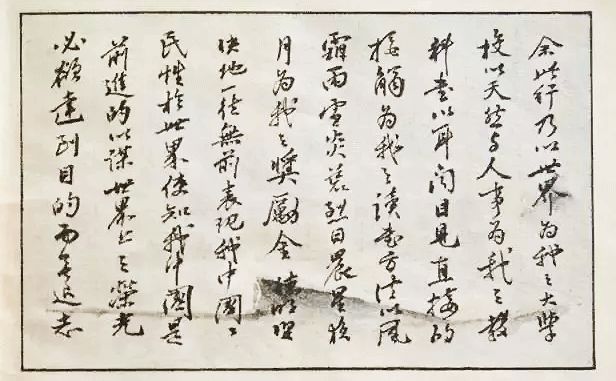 余此行乃以世界為我之大學
校以天然与人事為我之教
科書以耳闻目見直接的
接觸為我之讀書方法以風
霜雨雪炎荒烈日晨星夜
月為我之獎勵金 德明堅
决地一往無前表现我中國〻
民性於世界使知我中國是
前進的以謀世界上之榮光
必欲達到目的而無退志